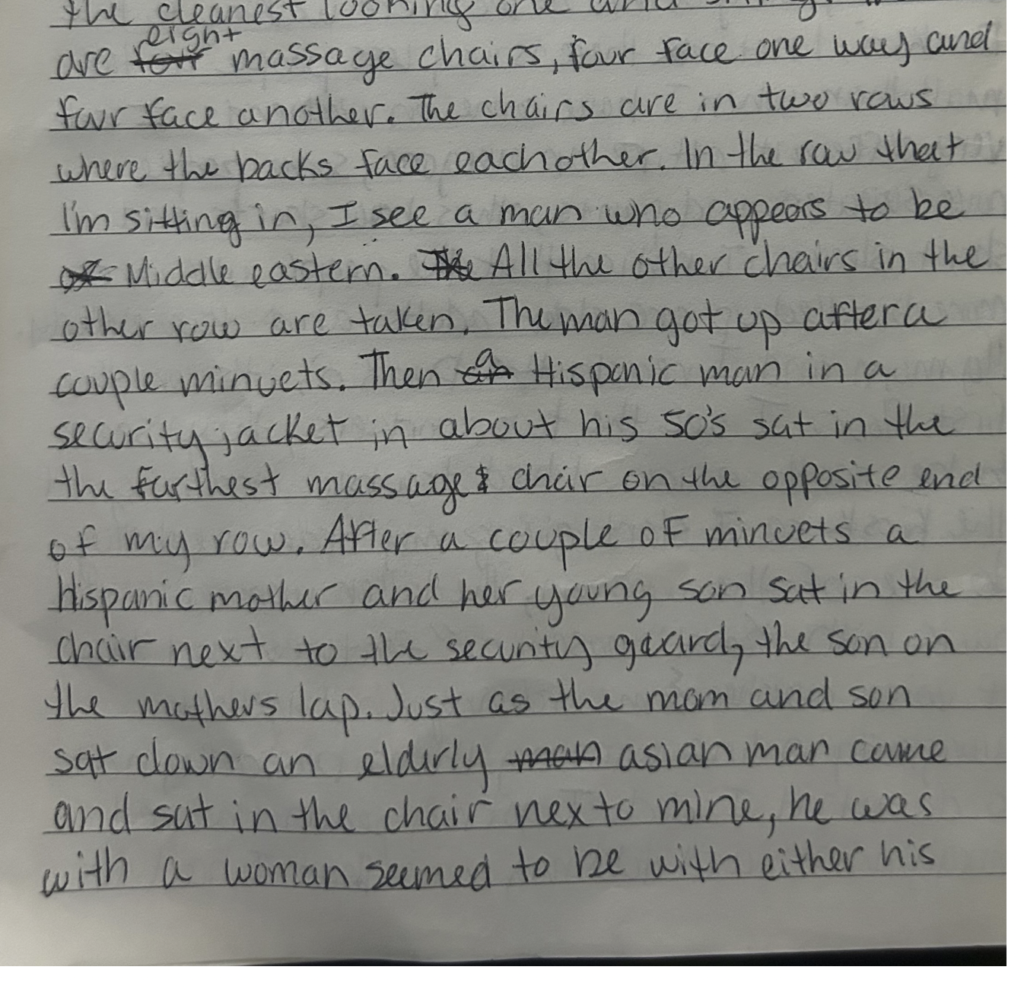 the cleanest looking one and
are eight massage chairs, four face one way and
four face another. The chairs are in two rows
where the backs face eachother. In the row that
I'm sitting in, I see a man who appears to be
Middle eastern. All the other chairs in the
other row are taken. The man got up after a
couple minuets. Then a Hispanic man in a
security jacket in about his 50's sat in the
the furthest massage chair on the opposite end
of my row. After a couple of minuets a
Hispanic mother and her young son sat in the
chair next to the security guard, the son on
the mothers lap. Just as the mom and son
sat down an elderly asian man came
and sat in the chair next to mine, he was
with a woman seemed to be with either his